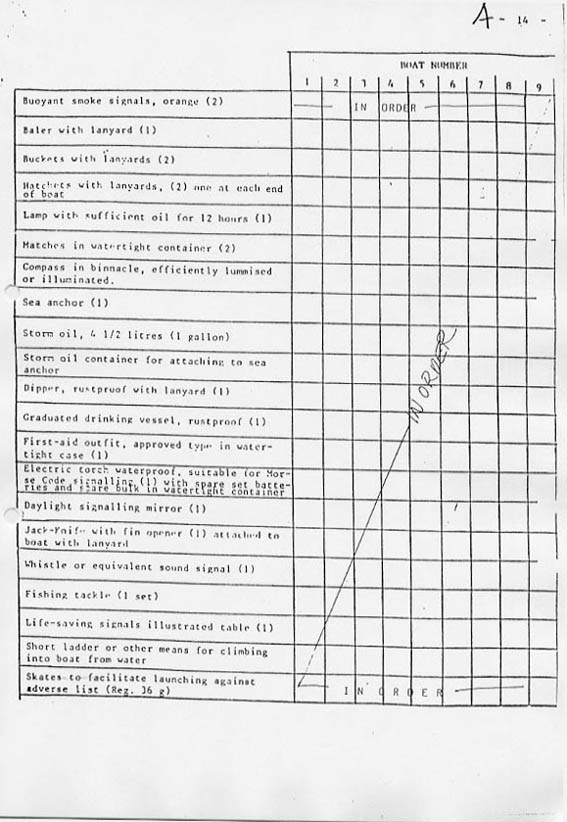 A - 14 -
BOAT NUMBER
1 2 3 4 5 6 7 8 9
Buoyant smoke signals, orange (2)
IN ORDER
Baler with lanyard (1)
Buckets with lanyards (2)
Hatchets with lanyards, (2) one at each end
of boat
Lamp with sufficient oil for 12 hours (1)
Matches in watertight container (2)
Compass in binnacle, efficiently lummised
or illuminated.
Sea anchor (1)
Storm oil, 4 1/2 litres (1 gallon)
Storm oil container for attaching to sea
anchor
Dipper, rustproof with lanyard (1)
IN ORDER
Graduated drinking vessel, rustproof (1)
First-aid outfit, approved type in water-
tight case (1)
Electric torch waterproof, suitable for Mor-
se Code signalling (1) with spare set batte-
ries and spare bulk in watertight container
Daylight signalling mirror (1)
Jack-Knife with fin opener (1) attached to
boat with lanyard
Whistle or equivalent sound signal (1)
Fishing tackle (1 set)
Life-saving signals illustrated table (1)
Short ladder or other means for climbing
into boat from water
Skates to facilitate launching against
adverse list (Reg. 36 g)
IN ORDER